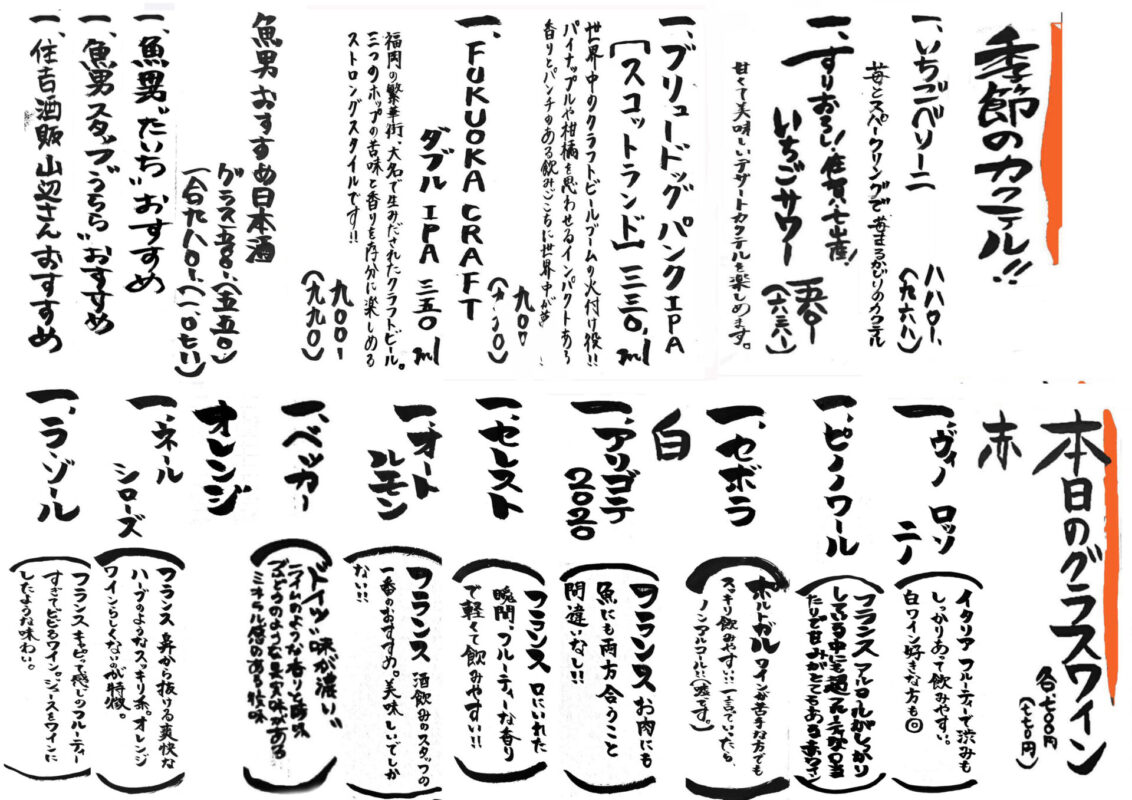 季節のカクテル!!
一、いちごベリーニ
苺とスパークリングで苺まるかじりのカクテル
八八〇ー、
(九六八)
一、すりおろし!佐賀・七山産!
いちごサワー
甘くて美味しいデザートカクテルを楽しめます。
一、ブリュードッグ パンクIPA
[スコットランド] 三三〇、ml
世界中のクラフトビールブームの火付け役!!
パイナップルや柑橘を思わせるインパクトある
香りとパンチのある飲みごこちに世界中が
九〇〇
一、FUKUOKA CRAFT
ダブル IPA 三五〇 ml
福岡の繁華街、大名で生みだされたクラフトビール。
三つのホップの苦味と香りを存分に楽しめる
ストロングスタイルです!!
九〇〇ー
(九九〇)
魚男 おすすめ日本酒
グラス五〇〇、(五五〇)
一、魚男"たいち"おすすめ
一、魚男スタッフ"うちら"おすすめ
一、住吉酒販 山辺さん おすすめ
本日のグラスワイン
各、七〇〇円
(七七〇円)
赤
一、ヴィノ ロッソ
イタリア フルーティで渋みも
しっかりあって飲みやすい。
白ワイン好きな方も◎
一、ピノノワール
フランス
一、セボラ
ポルトガル ワインが苦手な方でも
スッキリ飲みやすい!! 一言でいったら
ノンアルコール!!(嘘です。)
白
一、アリゴテ
2020
フランス お肉にも
魚にも両方合うこと
間違いなし!!
一、セレスト
フランス 口にいれた
瞬間、フルーティーな香り
で軽くて飲みやすい!!
一、オート
ルモン
フランス 酒飲みのスタッフの
一番のおすすめ。美味しいでしか
ない!!
一、ベッカー
ドイツ "味が濃い"
ライムのような香りと酸味
ブドウのような果実味がある
ミネラル感のある後味
オレンジ
一、ネール
シローズ
フランス 鼻から抜ける爽快な
ハーブのようなスッキリ系。オレンジ
ワインらしくないのが特徴。
一、ラ・ゾール
フランス
すぎてビビるワイン。ジュースをワインに
したような味わい。